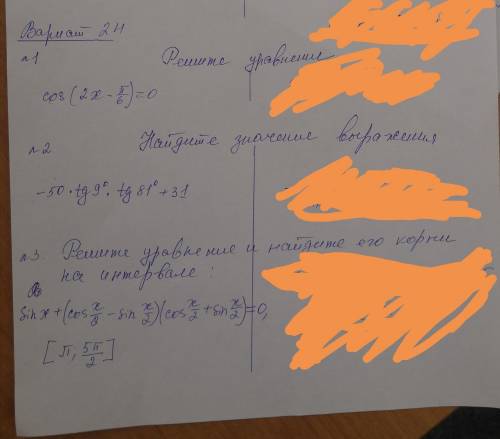 Вариант 24
n1 Решите уравнение
cos(2x - π/6) = 0
n2 Найдите значение выражения
-50 · tg 9° · tg 81° + 31
n3. Решите уравнение и найдите его корни
на интервале:
sin x + (cos x/2 - sin x/2)(cos x/2 + sin x/2) = 0,
[π; 5π/2]